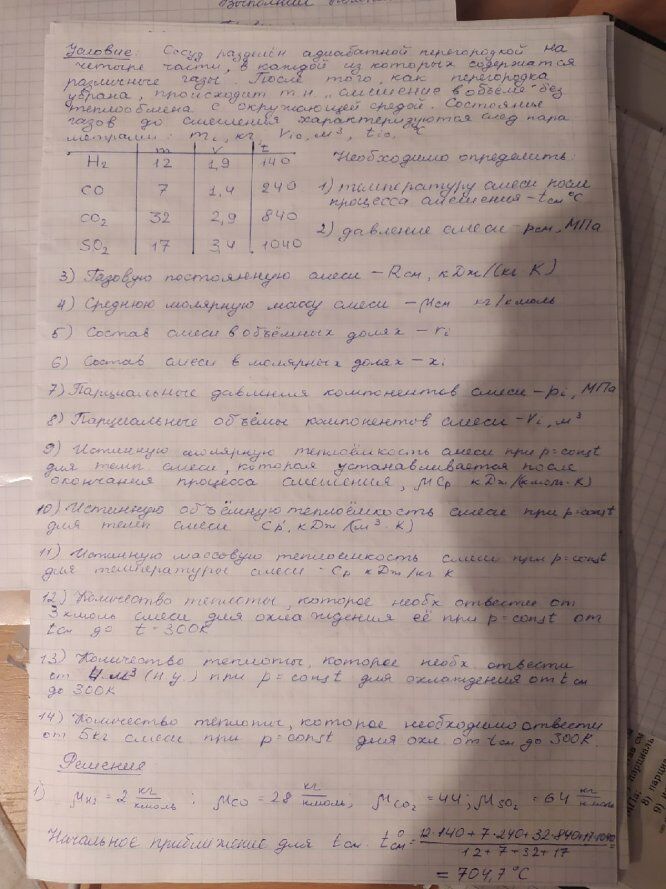 Условие: Сосуд разделён адиабатной перегородкой на
четыре части, в каждой из которых содержатся
различные газы. После того, как перегородка
убрана, происходит т.н. "смешение в объёме" без
теплообмена с окружающей средой. Состояние
газов до смешения характеризуются след пара
метрами: mi, кг, Vio, м³, tio, °C
m V t
H₂ 12 1,9 140
CO 7 1,4 240
CO₂ 32 2,9 840
SO₂ 17 3,4 1040
Необходимо определить:
1) температуру смеси после
процесса смешения – tсм °C
2) давление смеси – pсм, МПа
3) Газовую постоянную смеси – Rсм, кДж/(кг K)
4) Среднюю молярную массу смеси – μсм кг/кмоль
5) Состав смеси в объёмных долях – ri
6) Состав смеси в молярных долях – xi
7) Парциальные давления компонентов смеси – pi, МПа
8) Парциальные объёмы компонентов смеси – Vi, м³
9) Истинную молярную теплоёмкость смеси при p=const
для темп. смеси, которая устанавливается после
окончания процесса смешения, μCp кДж/(кмоль·K)
10) Истинную объёмную теплоёмкость смеси при p=const
для темп смеси Cp', кДж/(м³·K)
11) Истинную массовую теплоёмкость смеси при p=const
для температуры смеси – Cp кДж/кг K
12) Количество теплоты, которое необх отвести от
3 кмоль смеси для охлаждения её при p=const от
tсм до t=300K
13) Количество теплоты, которое необх. отвести
от 4 м³ (н.у.) при p=const для охлаждения от tсм
до 300K
14) Количество теплоты, которое необходимо отвести
от 5кг смеси при p=const для охл. от tсм до 300K.
Решение
1) μH₂ = 2 кг/кмоль ; μCO = 28 кг/кмоль, μCO₂ = 44; μSO₂ = 64 кг/кмоль
Начальное приближение для tсм. t⁰см = (12·140+7·240+32·840+17·1040)/(12+7+32+17) =
= 704,7 °C